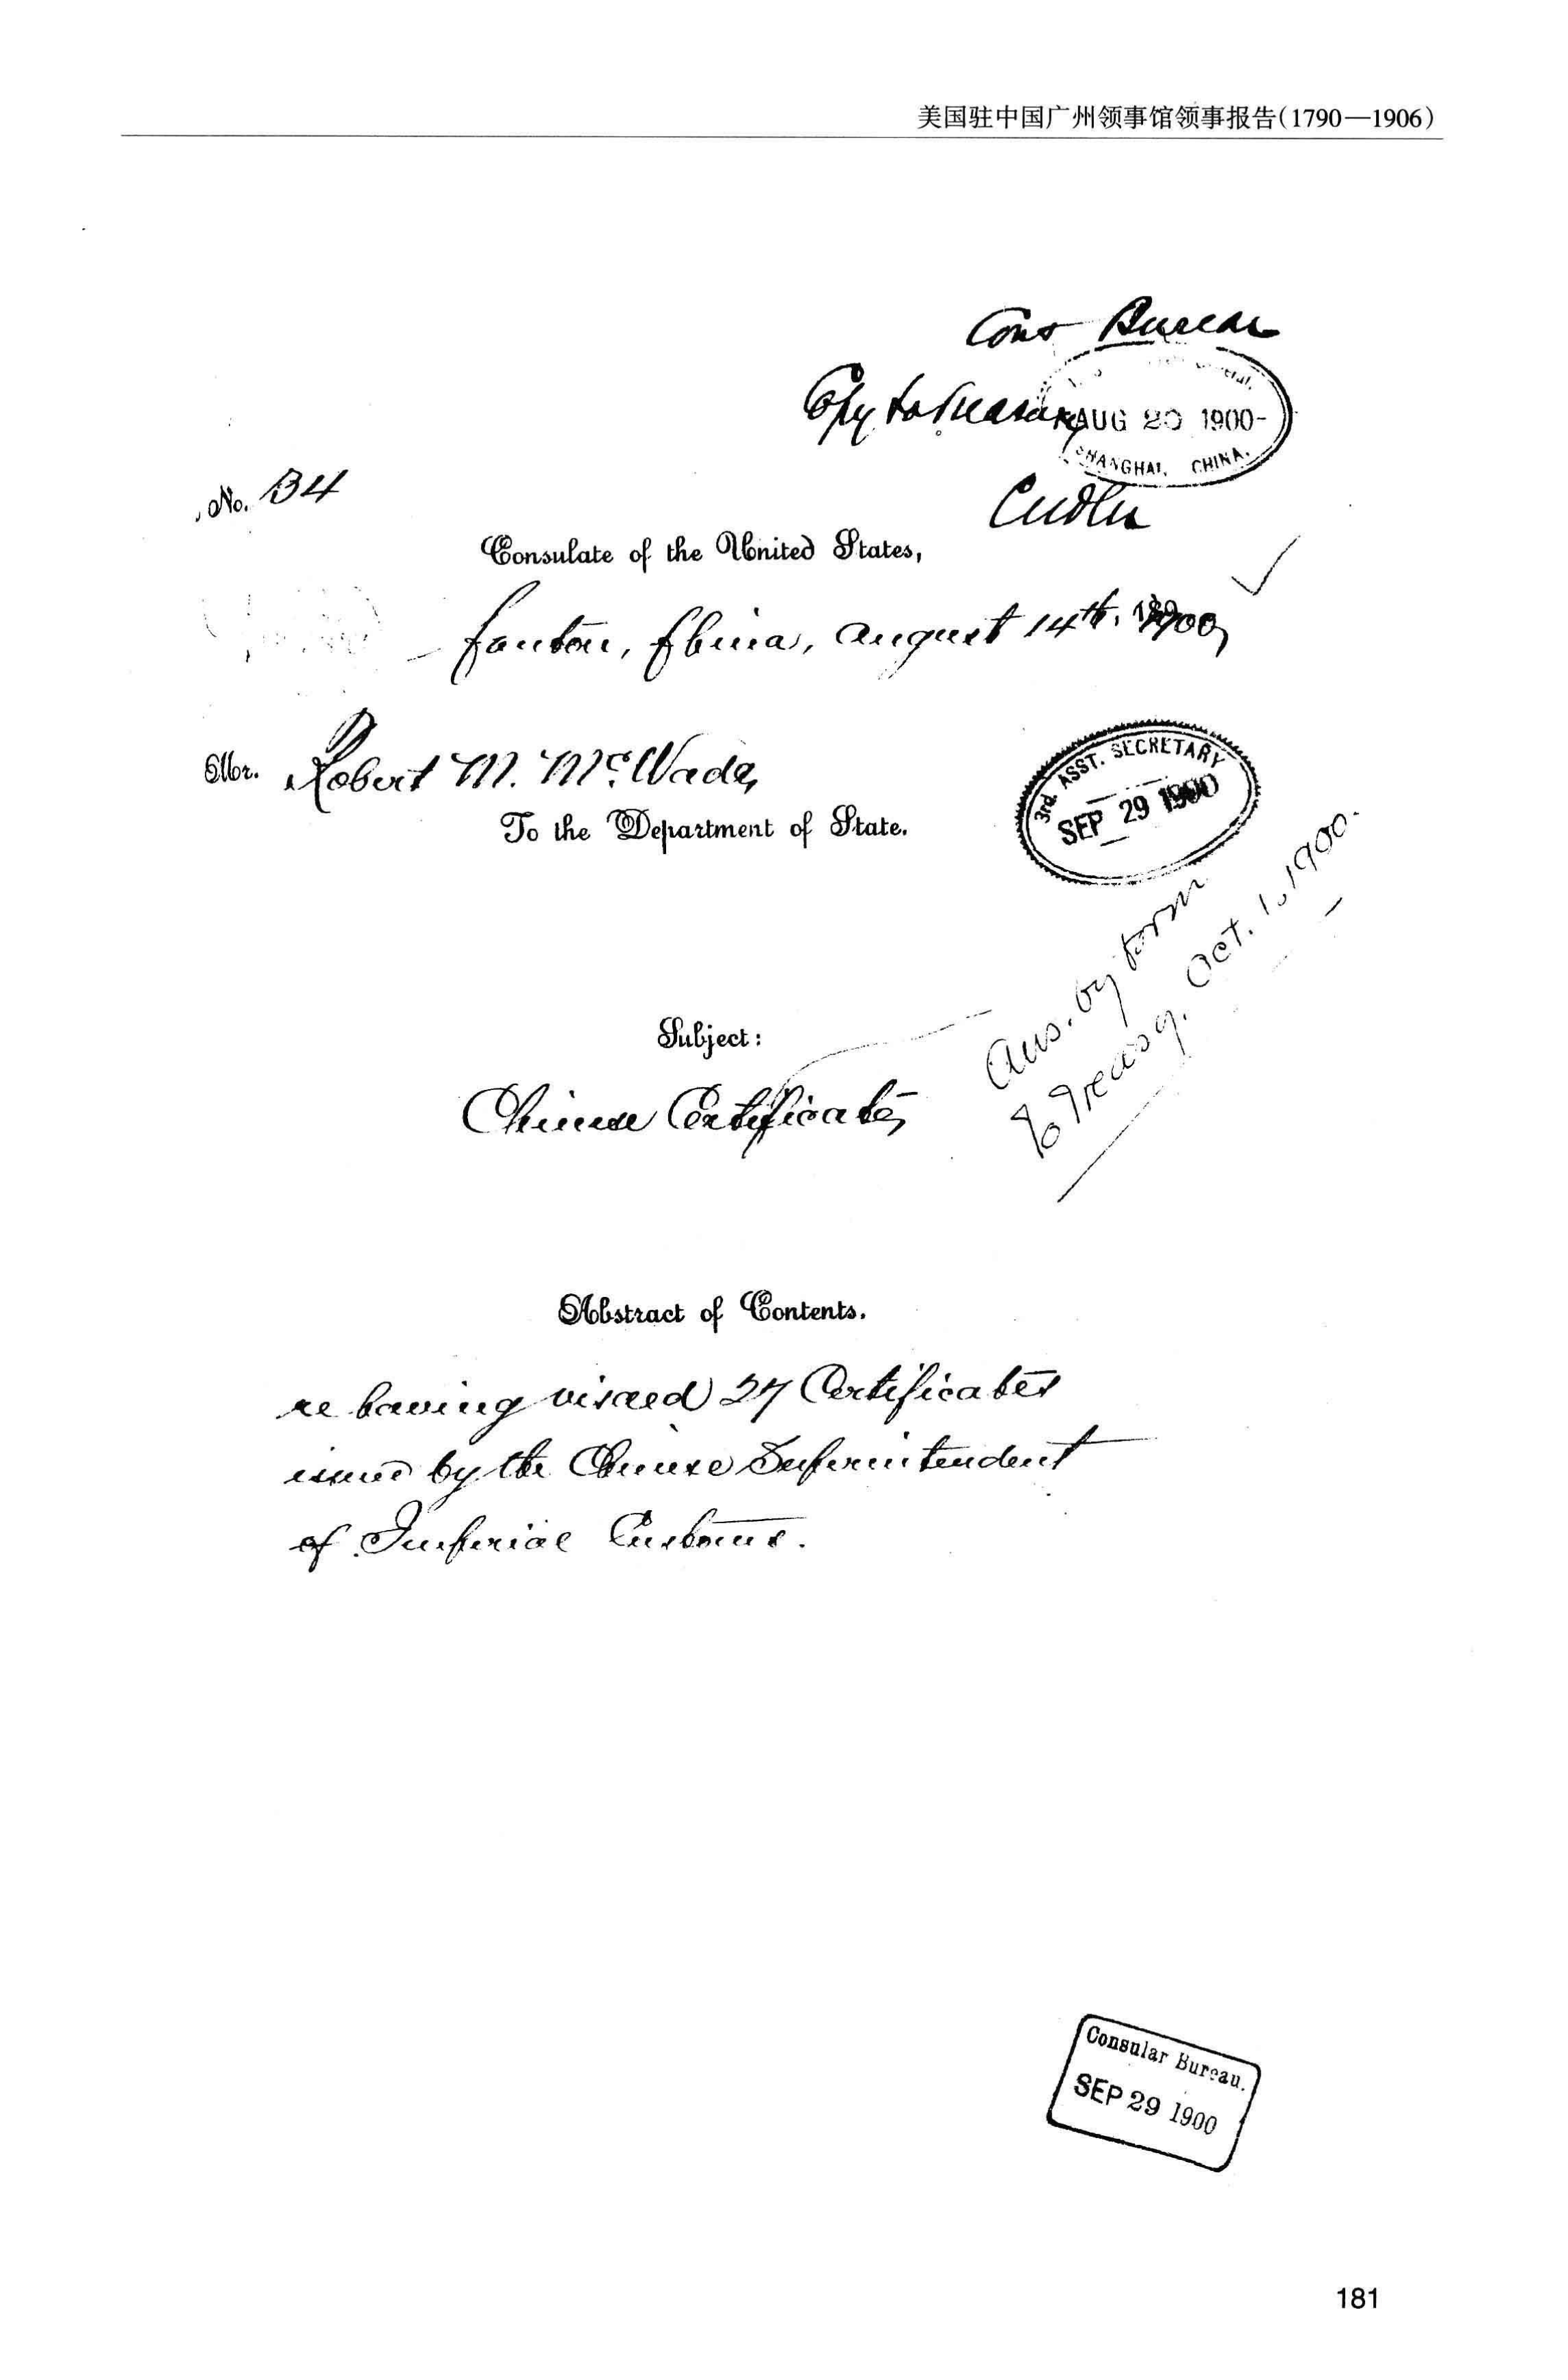 美国驻中国广州领事馆领事报告(1790—1906)
Cons Bureau
Copy to Treasury
AUG 20 1900
SHANGHAI, CHINA.
Cridler
No. 34
Consulate of the United States,
Canton, China, August 14th, 1900,
Mr. Robert M. McWade,
To the Department of State.
3rd. ASST. SECRETARY
SEP 29 1900
Ans. by form
to Treasy. Oct. 1, 1900.
Subject:
Chinese Certificates,
Abstract of Contents.
re having visaed 27 Certificates
issued by the Chinese Superintendent
of Imperial Customs.
Consular Bureau.
SEP 29 1900
181